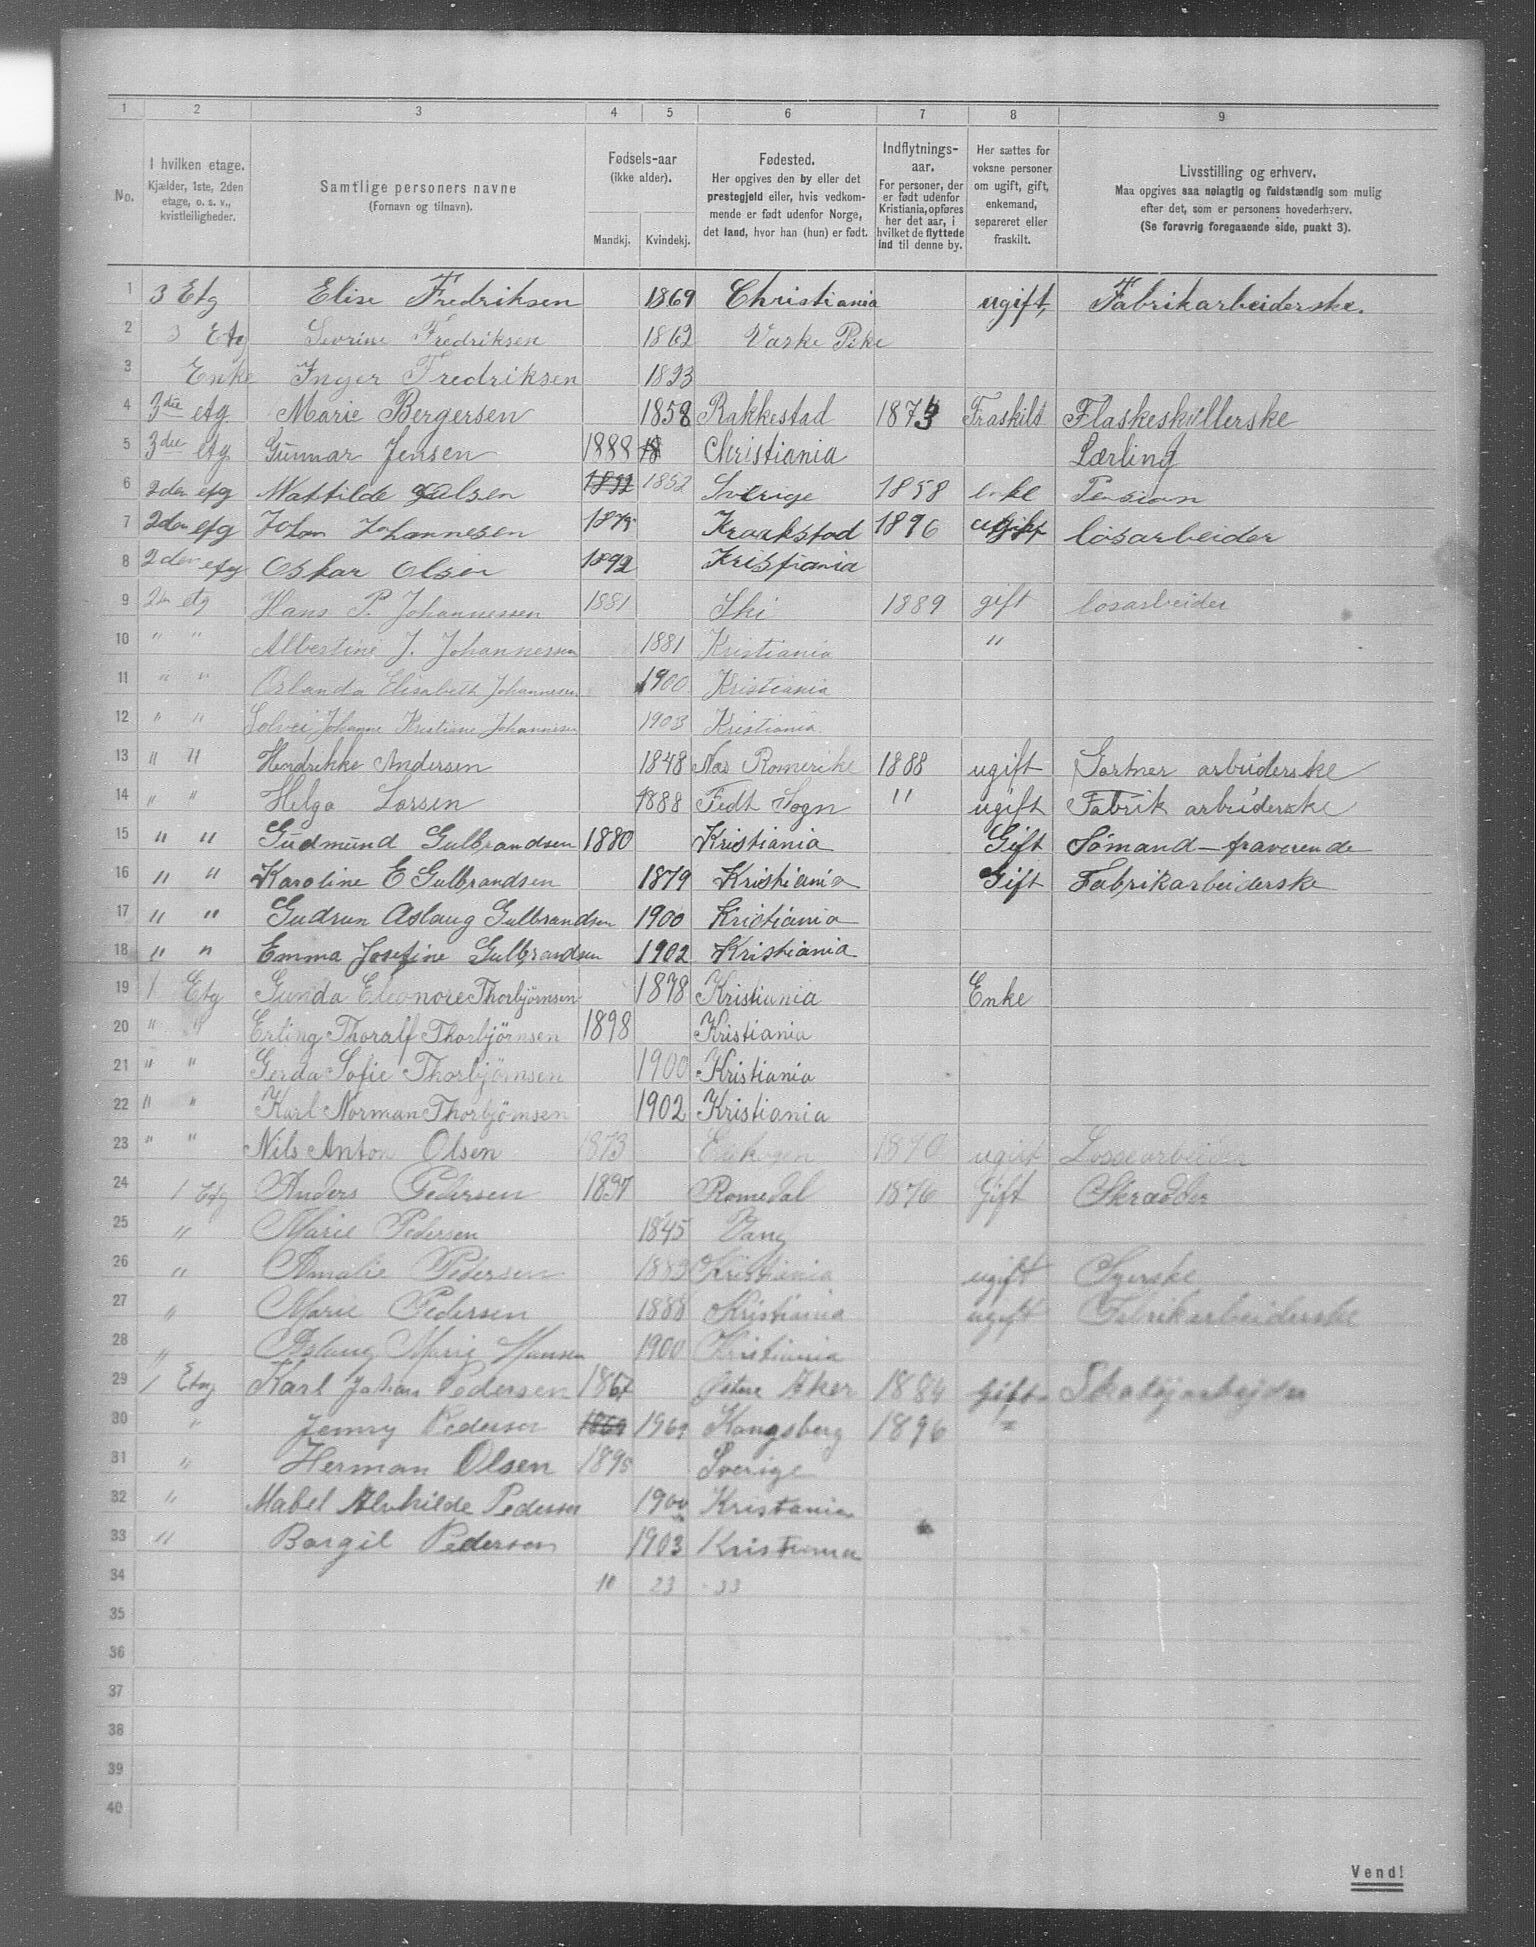 1 2 3 4 5 6 7 8 9
No.
I hvilken etage.
Kjælder, 1ste, 2den
etage, o. s. v.,
kvistleiligheder.
Samtlige personers navne
(Fornavn og tilnavn).
Fødsels-aar
(ikke alder).
Mandkj. Kvindekj.
Fødested.
Her opgives den by eller det
prestegjeld eller, hvis vedkom-
mende er født udenfor Norge,
det land, hvor han (hun) er født.
Indflytnings-
aar.
For personer, der
er født udenfor
Kristiania, opføres
her det aar, i
hvilket de flyttede
ind til denne by.
Her sættes for
voksne personer
om ugift, gift,
enkemand,
separeret eller
fraskilt.
Livsstilling og erhverv.
Maa opgives saa nøiagtig og fuldstændig som mulig
efter det, som er personens hovederhverv.
(Se forøvrig foregaaende side, punkt 3).
1 3 Etg Elise Fredriksen 1869 Christiania ugift, Fabrikarbeiderske.
2 3 Etg Sevrine Fredriksen 1862 Vaske Pike
3 Enke Inger Fredriksen 1823
4 3die etg Marie Bergersen 1858 Rakkestad Fraskilt Flaskeskyllerske
5 3die etg Gunnar Jensen 1888 18 Christiania Lærling
6 2den etg Mathilde Olsen 1852 1852 Sverige 1858 enke Pension
7 2den etg Johan Johannesen 1875 Kraakstad 1896 ugift løsarbeider
8 2den etg Oskar Olsen 1892 Kristiania
9 2den etg Hans P. Johannessen 1881 Ski 1889 gift løsarbeider
10 " " Albertine J. Johannessen 1881 Kristiania "
11 " " Orlanda Elisabeth Johannessen 1900 Kristiania
12 " " Solvei Johanne Kristiane Johannesen 1903 Kristiania
13 " " Hendrikke Andersen 1848 Nas Romerike 1888 ugift Gartner arbeiderske
14 " " Helga Larsen 1888 Fedt Sogn " ugift Fabrik arbeiderske
15 " " Gudmund Gulbrandsen 1880 Kristiania Gift Sømand – fraverende
16 " " Karoline E Gulbrandsen 1879 Kristiania Gift Fabrikarbeiderske
17 " " Gudrun Aslaug Gulbrandsen 1900 Kristiania
18 " " Emma Josefine Gulbrandsen 1902 Kristiania
19 1 Etg Gunda Eleonore Thorbjørnsen 1878 Kristiania Enke
20 " " Erling Thoralf Thorbjørnsen 1898 Kristiania
21 " " Gerda Sofie Thorbjørnsen 1900 Kristiania
22 " " Karl Norman Thorbjørnsen 1902 Kristiania
23 " " Nils Anton Olsen 1873 1890 ugift Løssearbeider
24 1 Etg Anders Pedersen 1837 Romedal 1876 Gift Skrædder
25 " Marie Pedersen 1845 Vang
26 " Amalie Pedersen 1883 Kristiania ugift Syerske
27 " Marie Pedersen 1888 Kristiania ugift Fabrikarbeiderske
28 " Aslaug Marie Hansen 1900 Kristiania
29 1 Etg Karl Johan Pedersen 1867 Østre Aker 1884 Gift Skotøjarbejder
30 " Jenny Pedersen 1869 1969 Kongsberg 1896 "
31 " Herman Olsen 1895 Sverige
32 " Mabel Alvhilde Pedersen 1900 Kristania
33 " Borgil Pedersen 1903 Kristiania
34 10 23 33
35
36
37
38
39
40
Vend!